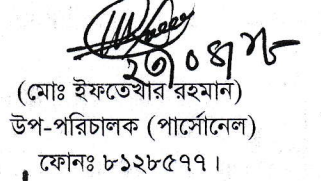 (মোঃ ইফতেখার রহমান)
উপ-পরিচালক (পার্সোনেল)
ফোনঃ ৮১২৮৫৭৭।